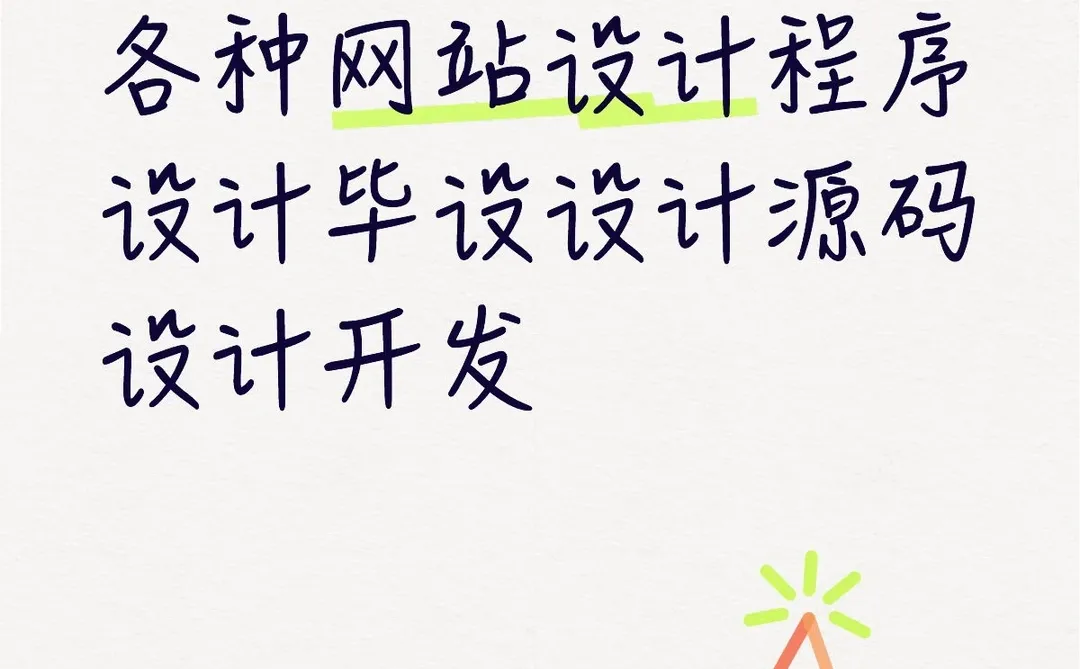 各种网站设计程序
设计毕设设计源码
设计开发